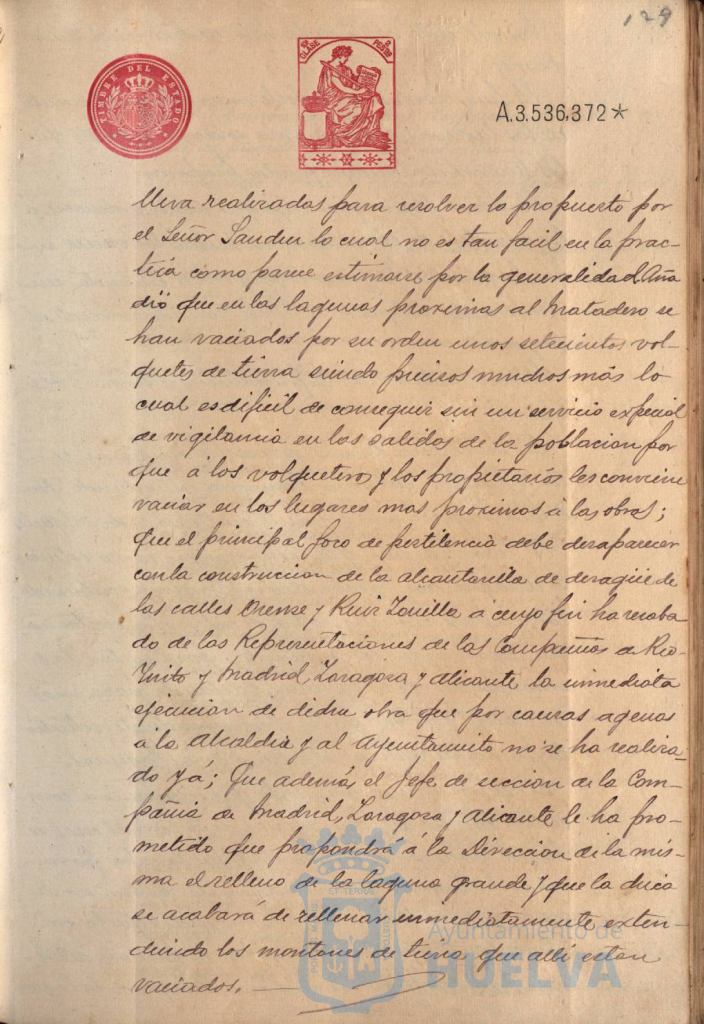 129
TIMBRE DEL ESTADO
10ª CLASE 2 PESETAS
A.3.536,372*
lleva realizadas para resolver lo propuesto por
el Señor Sanchez lo cual no es tan facil en la prac-
tica como parece estimarse por la generalidad. Aña
dió que en las lagunas proximas al Matadero se
han vaciados por su orden unos setecientos vol-
quetes de tierra siendo precisos muchos más lo
cual es dificil de conseguir sin un servicio especial
de vigilancia en las salidas de la poblacion por
que á los volqueteros y los propietarios les conviene
vaciar en los lugares mas proximos á las obras;
que el principal foco de pestilencia debe desaparecer
con la construccion de la alcantarilla de desagüe de
las calles Orense y Ruiz Zorilla á cuyo fin ha recaba
do de las Representaciones de las Compañias de Rio-
Tinto y Madrid, Zaragoza y Alicante la inmediata
ejecucion de dicha obra que por causas agenas
á la Alcaldia y al Ayuntamiento no se ha realiza-
do yá; Que además el Jefe de seccion de la Com-
pañia de Madrid, Zaragoza y Alicante le ha pro-
metido que propondrá á la Direccion de la mis-
ma el relleno de la laguna grande y que la chica
se acabará de rellenar inmediatamente exten-
diendo los montones de tierra que allí estan
vaciados.
Ayuntamiento de
HUELVA